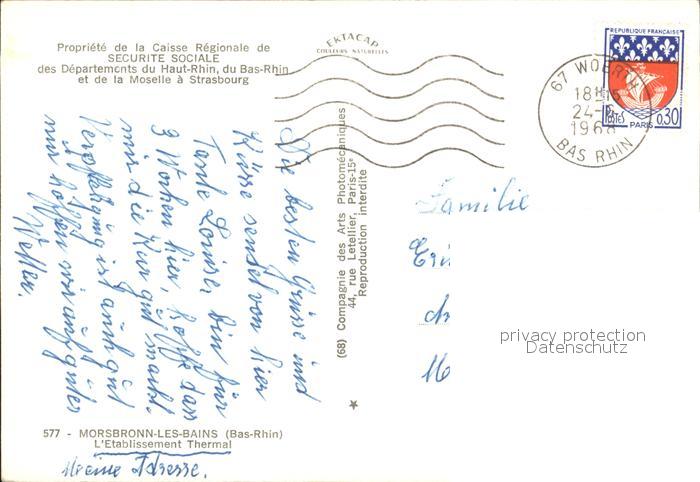 Propriété de la Caisse Régionale de
SECURITE SOCIALE
des Départements du Haut-Rhin, du Bas-Rhin
et de la Moselle à Strasbourg
EKTACAP
COULEURS NATURELLES
REPUBLIQUE FRANÇAISE
POSTES
PARIS 0,30
67 WOERTH
18H15
24-
1968
BAS RHIN
Die besten Grüsse und
Küsse sendet von hier
Tante Louise, bin für
3 Wochen hier, hoffe dass
mir die Kur gut macht.
Verpflegung ist auch gut
nur hoffen wir auf gutes
Wetter.
(68) Compagnie des Arts Photomécaniques
44, rue Letellier, Paris-15e
Reproduction interdite
Familie
privacy protection
Datenschutz
577 - MORSBRONN-LES-BAINS (Bas-Rhin)
L'Etablissement Thermal
Meine Adresse.